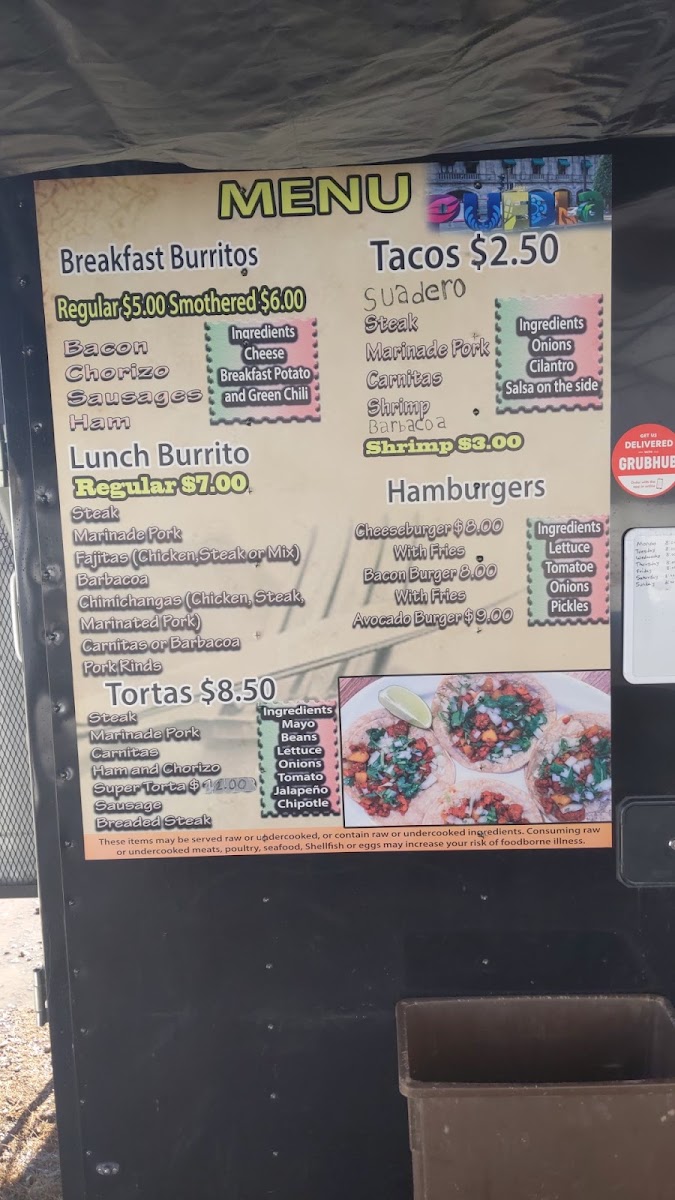 MENU
PUEBLA
Breakfast Burritos
Regular $5.00 Smothered $6.00
Bacon
Chorizo
Sausages
Ham
Ingredients
Cheese
Breakfast Potato
and Green Chili
Lunch Burrito
Regular $7.00
Steak
Marinade Pork
Fajitas (Chicken,Steak or Mix)
Barbacoa
Chimichangas (Chicken, Steak,
Marinated Pork)
Carnitas or Barbacoa
Pork Rinds
Tortas $8.50
Steak
Marinade Pork
Carnitas
Ham and Chorizo
Super Torta $ 11.00
Sausage
Breaded Steak
Ingredients
Mayo
Beans
Lettuce
Onions
Tomato
Jalapeño
Chipotle
Tacos $2.50
Suadero
Steak
Marinade Pork
Carnitas
Shrimp
Barbacoa
Shrimp $3.00
Ingredients
Onions
Cilantro
Salsa on the side
Hamburgers
Cheeseburger $ 8.00
With Fries
Bacon Burger 8.00
With Fries
Avocado Burger $ 9.00
Ingredients
Lettuce
Tomatoe
Onions
Pickles
These items may be served raw or undercooked, or contain raw or undercooked ingredients. Consuming raw
or undercooked meats, poultry, seafood, Shellfish or eggs may increase your risk of foodborne illness.
GET US
DELIVERED
WITH
GRUBHUB